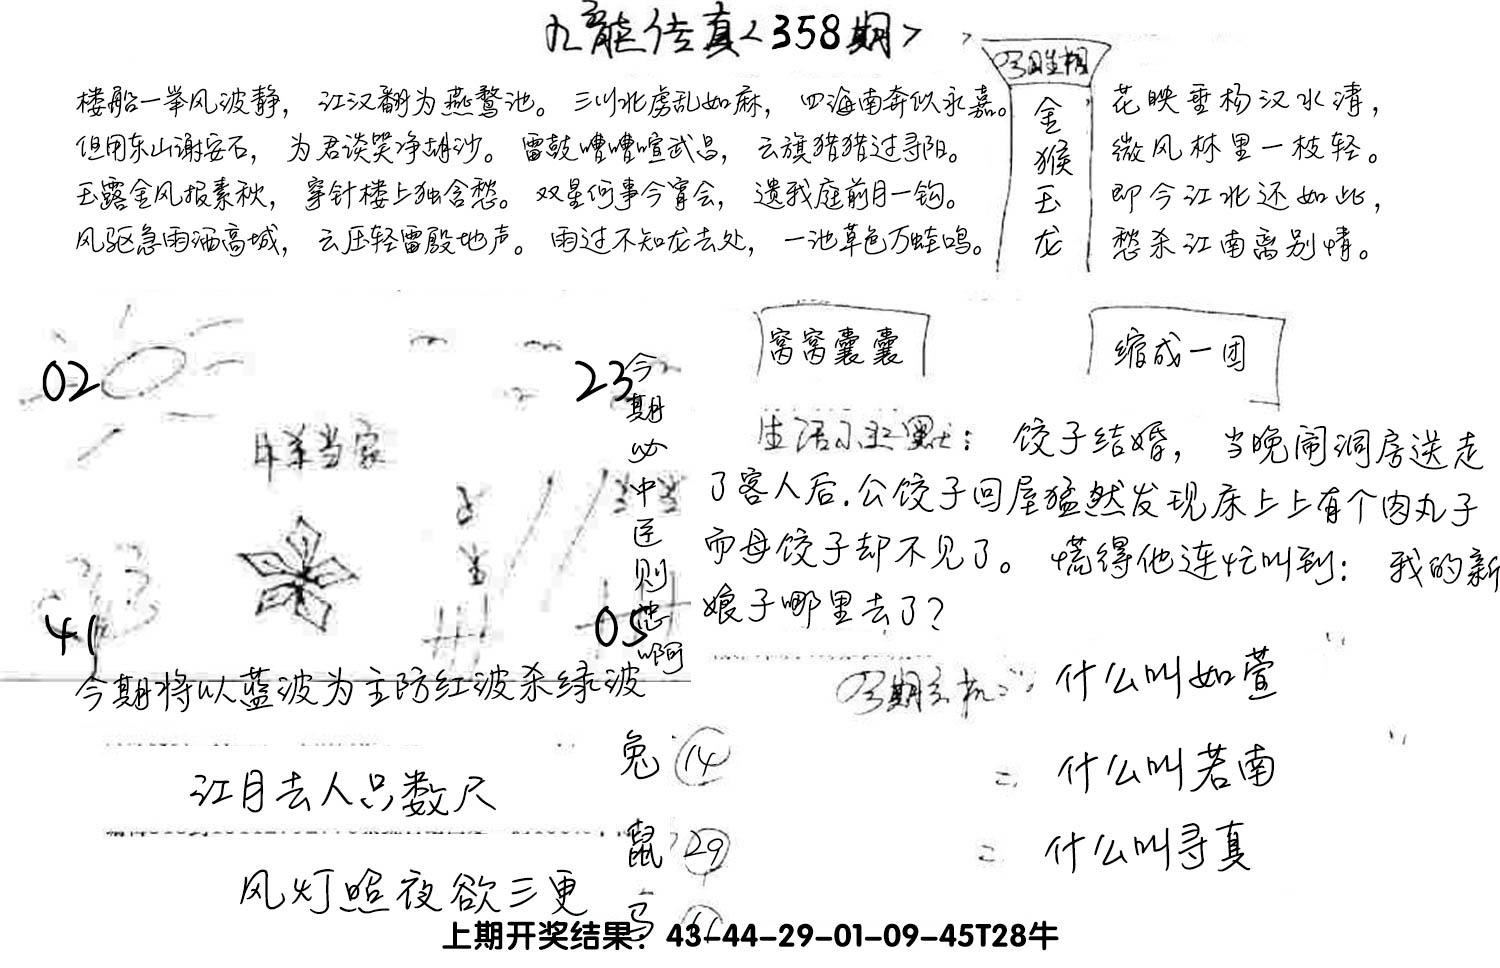 九龙传真<358期>
楼船一举风波静，江汉翻为燕鹜池。三川北虏乱如麻，四海南奔似永嘉。
但用东山谢安石，为君谈笑净胡沙。雷鼓嘈嘈喧武昌，云旗猎猎过寻阳。
玉露金风报素秋，穿针楼上独含愁。双星何事今宵会，遗我庭前月一钩。
风驱急雨洒高城，云压轻雷殷地声。雨过不知龙去处，一池草色万蛙鸣。
今日生相
金猴玉龙
花映垂杨汉水清，
微风林里一枝轻。
即今江北还如此，
愁杀江南离别情。
02
23
41
05
今期必中否则怨啊
今期将以蓝波为主防红波杀绿波
窝窝囊囊
缩成一团
生活小幽默：饺子结婚，当晚闹洞房送走
了客人后.公饺子回屋猛然发现床上上有个肉丸子
而母饺子却不见了。慌得他连忙叫到：我的新
娘子哪里去了？
今期玄机：什么叫如萱
= 什么叫若南
= 什么叫寻真
江月去人只数尺
风灯照夜欲三更
兔 14
鼠 29
马 11
上期开奖结果：43-44-29-01-09-45T28牛